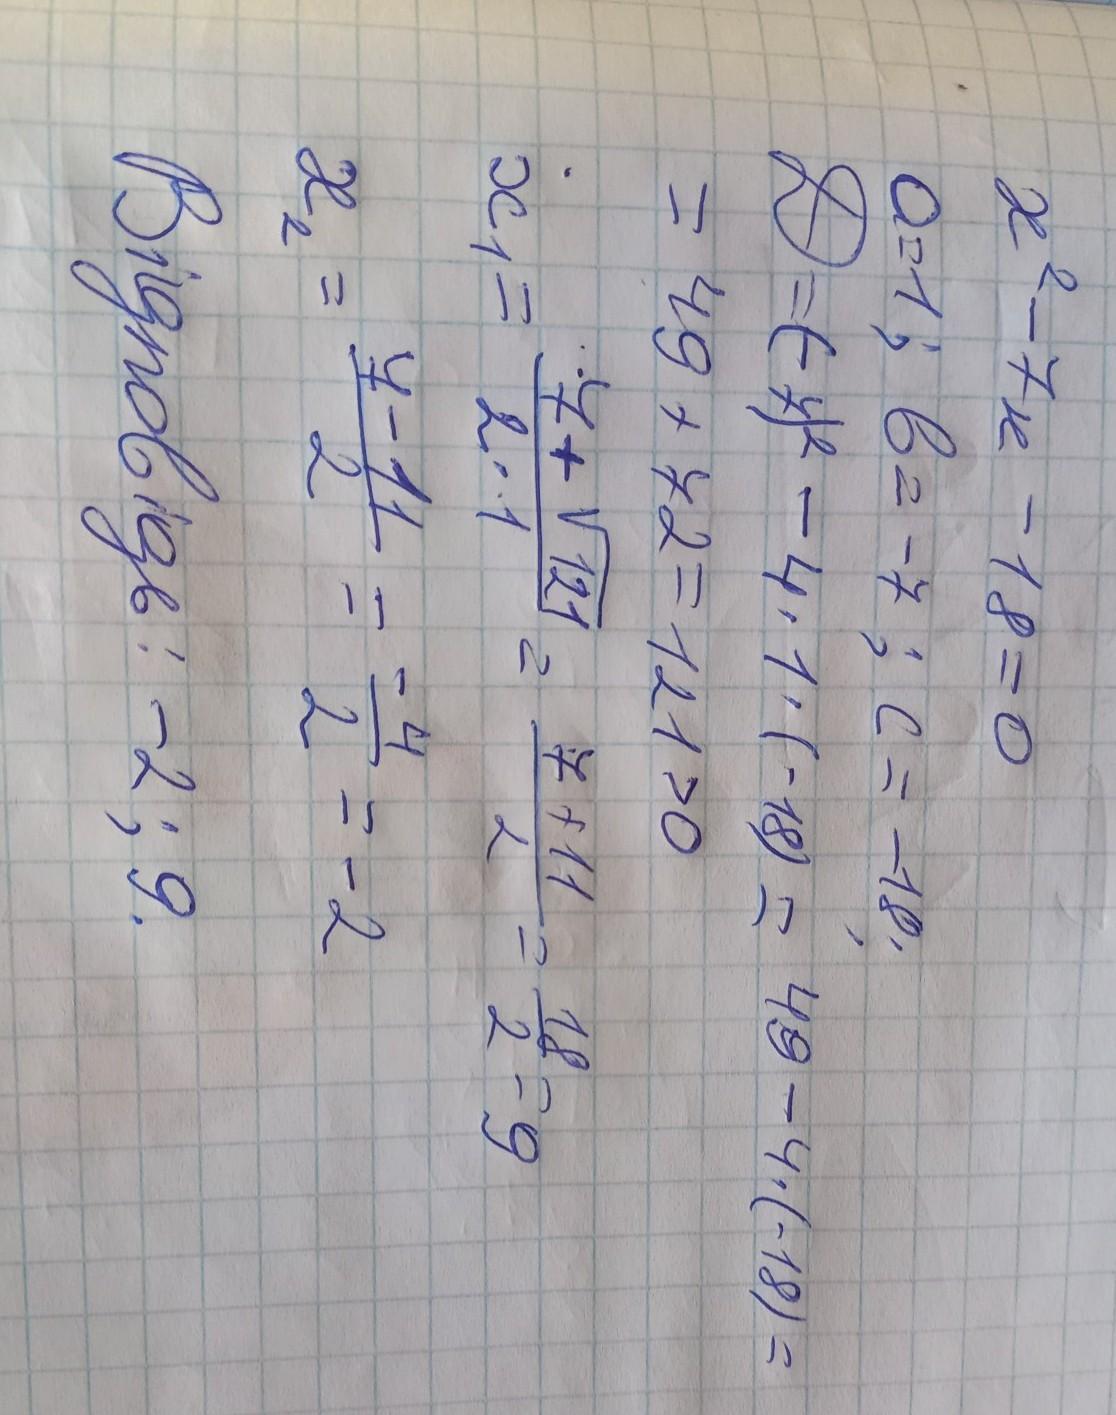 x² - 7x - 18 = 0
a = 1; b = -7; c = -18;
D = (-7)² - 4·1·(-18) = 49 - 4·(-18) =
= 49 + 72 = 121 > 0
x₁ = (7 + √121)/(2·1) = (7 + 11)/2 = 18/2 = 9
x₂ = (7 - 11)/2 = = -4/2 = -2
Відповідь: -2; 9.